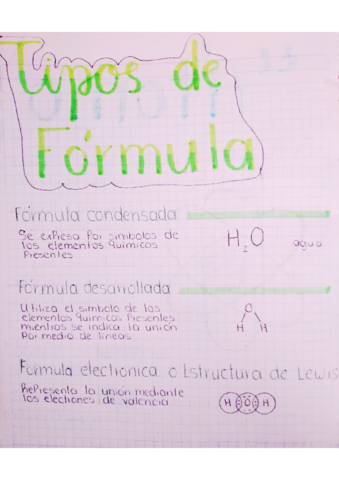 Tipos de
Fórmula
Fórmula condensada
Se expresa por simbolos de
los elementos químicos
Presentes
H₂O agua
Fórmula desarrollada
Utiliza el simbolo de los
elementos químicos Presentes
mientras se indica la unión
por medio de lineas
O
H H
Formula electronica o Estructura de Lewis
Representa la unión mediante
los electrones de valencia
H O H